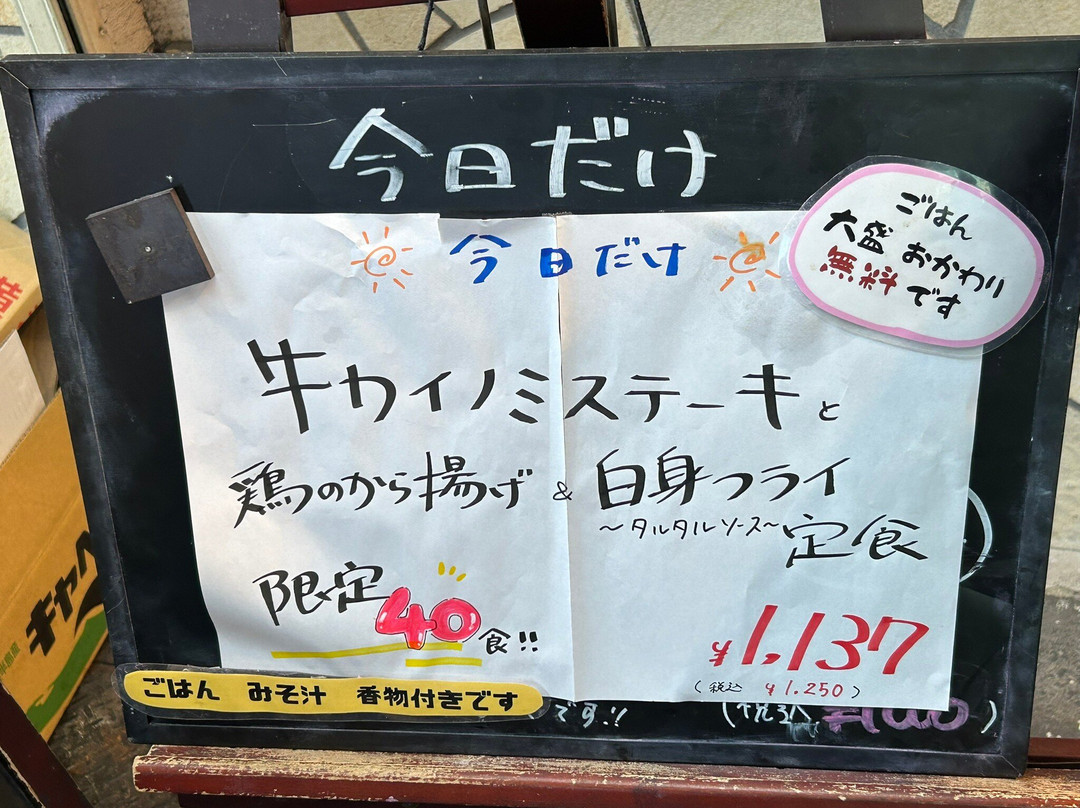 今日だけ
今日だけ
ごはん
大盛 おかわり
無料 です
牛カイノミステーキと
鶏のから揚げ & 白身フライ
～タルタルソース～ 定食
限定40食!!
¥1,137
(税込 ¥1.250)
ごはん みそ汁 香物付きです
です!!
(税込
キャベ